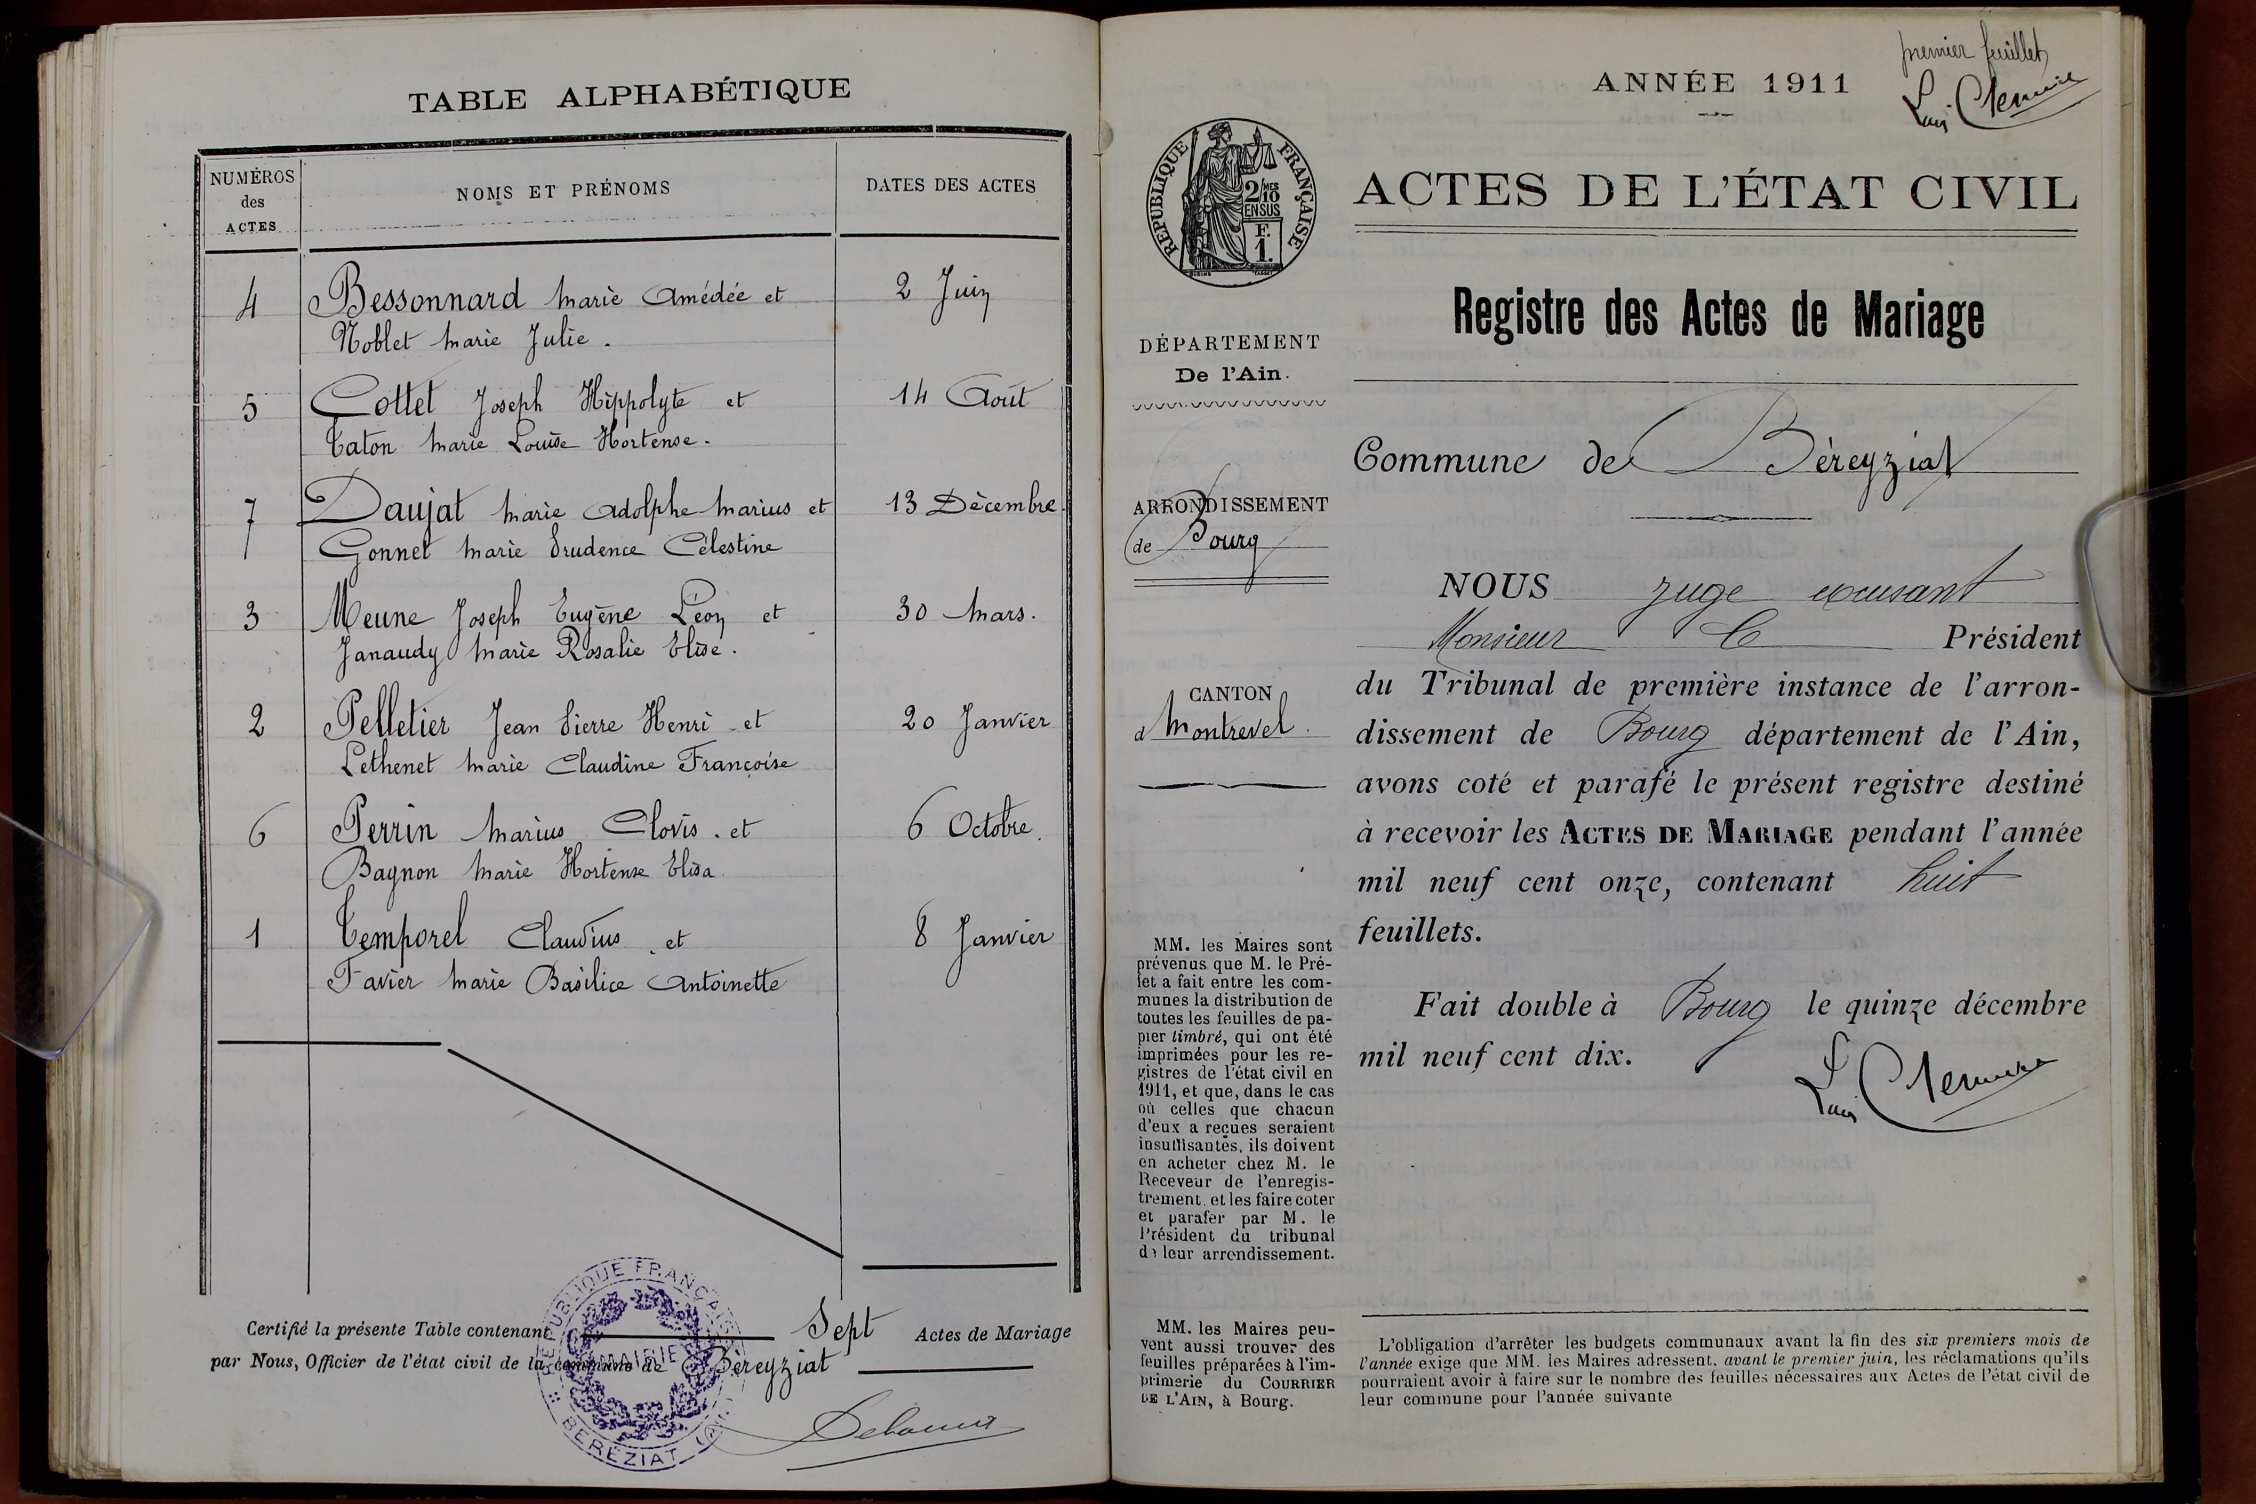 TABLE ALPHABÉTIQUE
NUMÉROS
des
ACTES
NOMS ET PRÉNOMS
DATES DES ACTES
4 Bessonnard Marie Amédée et 2 Juin
Noblet Marie Julie.
5 Cottet Joseph Hippolyte et 14 Août
Caton Marie Louise Hortense.
7 Daujat Marie Adolphe Marius et 13 Décembre.
Gonnet Marie Prudence Célestine
3 Meune Joseph Eugène Léon et 30 Mars.
Janaudy Marie Rosalie Elise.
2 Pelletier Jean Pierre Henri et 20 Janvier
Lethenet Marie Claudine Françoise
6 Perrin Marius Clovis. et 6 Octobre.
Bagnon Marie Hortense Elisa.
1 Temporel Claudius et 8 Janvier
Favier Marie Basilice Antoinette
Certifié la présente Table contenant Sept Actes de Mariage
par Nous, Officier de l'état civil de la commune de Béreyziat
RÉPUBLIQUE FRANÇAISE
MAIRIE
BÉRÉZIAT (AIN)
premier feuillet
ANNÉE 1911
RÉPUBLIQUE FRANÇAISE
2/MES
10
EN SUS
F.
1.
ACTES DE L'ÉTAT CIVIL
Registre des Actes de Mariage
DÉPARTEMENT
De l'Ain.
ARRONDISSEMENT
de Bourg
CANTON
d Montrevel.
MM. les Maires sont
prévenus que M. le Pré-
fet a fait entre les com-
munes la distribution de
toutes les feuilles de pa-
pier timbré, qui ont été
imprimées pour les re-
gistres de l'état civil en
1911, et que, dans le cas
où celles que chacun
d'eux a reçues seraient
insuffisantes, ils doivent
en acheter chez M. le
Receveur de l'enregis-
trement, et les faire coter
et parafer par M. le
Président du tribunal
de leur arrondissement.
MM. les Maires peu-
vent aussi trouver des
feuilles préparées à l'im-
primerie du COURRIER
DE L'AIN, à Bourg.
Commune de Béreyziat
NOUS juge excusant
Monsieur le Président
du Tribunal de première instance de l'arron-
dissement de Bourg département de l'Ain,
avons coté et parafé le présent registre destiné
à recevoir les ACTES DE MARIAGE pendant l'année
mil neuf cent onze, contenant huit
feuillets.
Fait double à Bourg le quinze décembre
mil neuf cent dix.
L'obligation d'arrêter les budgets communaux avant la fin des six premiers mois de
l'année exige que MM. les Maires adressent, avant le premier juin, les réclamations qu'ils
pourraient avoir à faire sur le nombre des feuilles nécessaires aux Actes de l'état civil de
leur commune pour l'année suivante